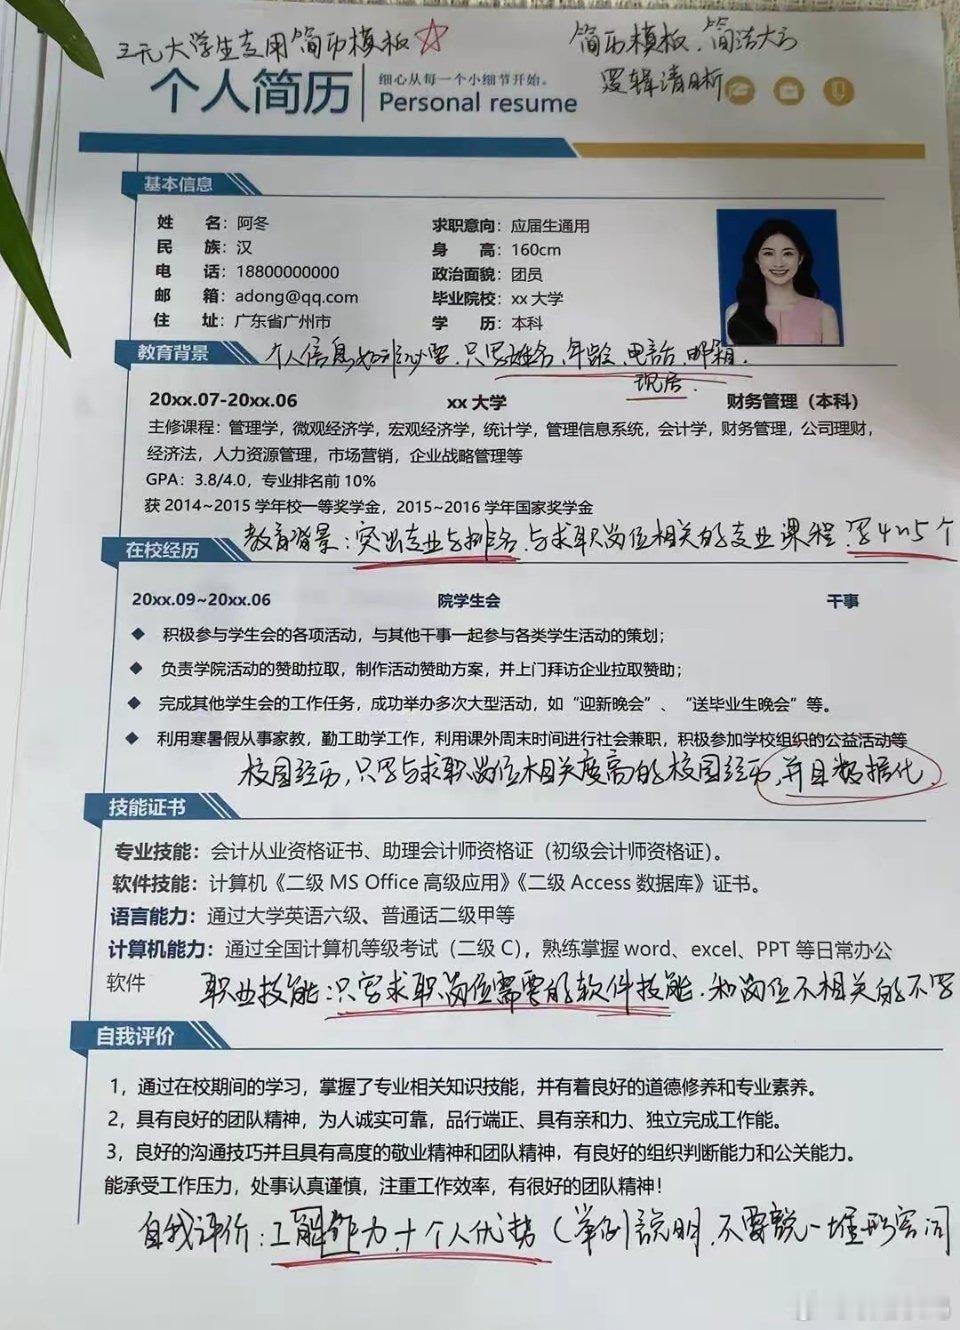 大学生专用简历模板
简历模板.简洁大方
逻辑清晰
个人简历
细心从每一个小细节开始。
Personal resume
基本信息
姓 名：阿冬
求职意向：应届生通用
民 族：汉
身 高：160cm
电 话：18800000000
政治面貌：团员
邮 箱：adong@qq.com
毕业院校：xx 大学
住 址：广东省广州市
学 历：本科
教育背景
个人信息 只写姓名.年龄.电话.邮箱.
现居.
20xx.07-20xx.06 xx 大学 财务管理（本科）
主修课程：管理学，微观经济学，宏观经济学，统计学，管理信息系统，会计学，财务管理，公司理财，
经济法，人力资源管理，市场营销，企业战略管理等
GPA：3.8/4.0，专业排名前 10%
获 2014~2015 学年校一等奖学金，2015~2016 学年国家奖学金
教育背景：突出专业与排名.与求职岗位相关的专业课程.写4～5个
在校经历
20xx.09~20xx.06 院学生会 干事
◆ 积极参与学生会的各项活动，与其他干事一起参与各类学生活动的策划；
◆ 负责学院活动的赞助拉取，制作活动赞助方案，并上门拜访企业拉取赞助；
◆ 完成其他学生会的工作任务，成功举办多次大型活动，如“迎新晚会”、“送毕业生晚会”等。
◆ 利用寒暑假从事家教，勤工助学工作，利用课外周末时间进行社会兼职，积极参加学校组织的公益活动等
校园经历,只写与求职岗位相关度高的校园经历,并且数据化.
技能证书
专业技能：会计从业资格证书、助理会计师资格证（初级会计师资格证）。
软件技能：计算机《二级 MS Office 高级应用》《二级 Access 数据库》证书。
语言能力：通过大学英语六级、普通话二级甲等
计算机能力：通过全国计算机等级考试（二级 C），熟练掌握 word、excel、PPT 等日常办公
软件
职业技能：只写求职岗位需要的软件技能.和岗位不相关的不写
自我评价
1，通过在校期间的学习，掌握了专业相关知识技能，并有着良好的道德修养和专业素养。
2，具有良好的团队精神，为人诚实可靠，品行端正、具有亲和力、独立完成工作能。
3，良好的沟通技巧并且具有高度的敬业精神和团队精神，有良好的组织判断能力和公关能力。
能承受工作压力，处事认真谨慎，注重工作效率，有很好的团队精神！
自我评价：工作能力+个人优势（举例)说明.不要说一堆形容词